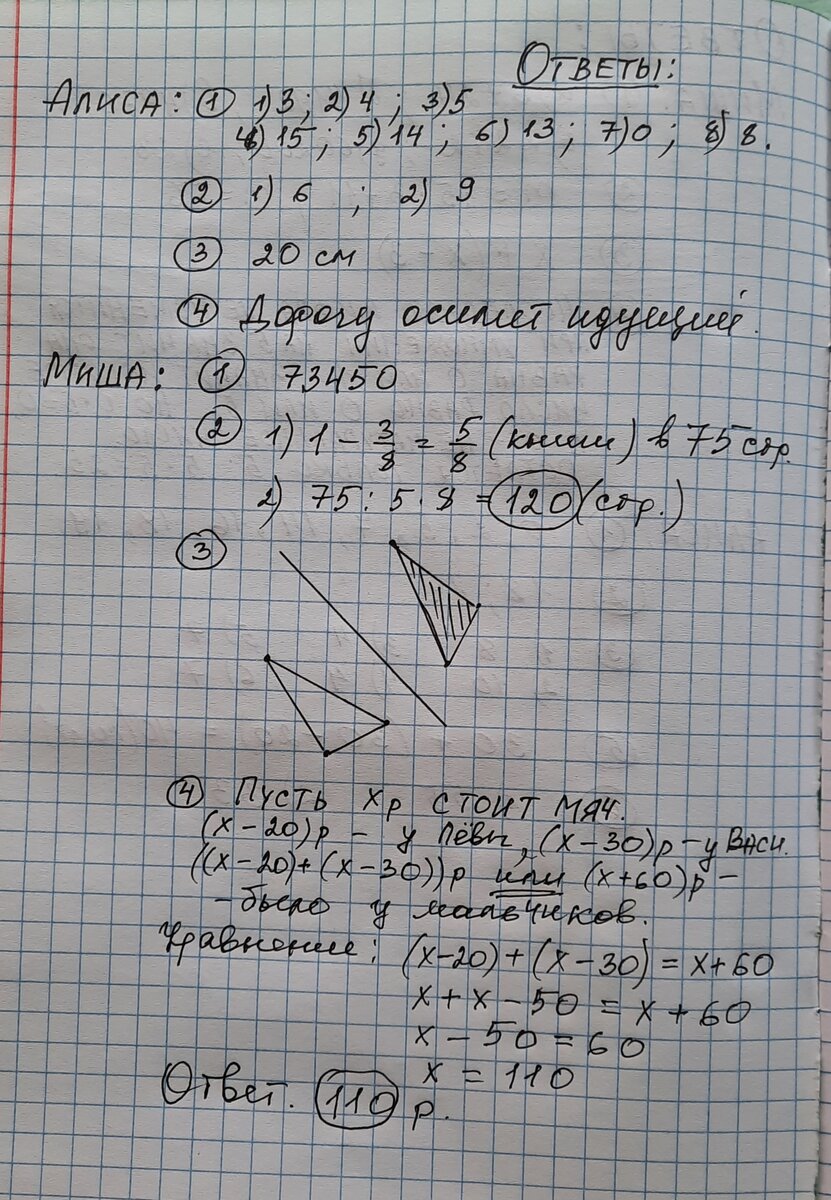 ОТВЕТЫ:
АЛИСА: ① 1) 3 ; 2) 4 ; 3) 5
4) 15 ; 5) 14 ; 6) 13 ; 7) 0 ; 8) 8.
② 1) 6 ; 2) 9
③ 20 см
④ Дорогу осилит идущий.
МИША: ① 73450
② 1) 1 - 3/8 = 5/8 (книги) в 75 стр.
2) 75 : 5 · 8 = 120 (стр.)
③
④ ПУСТЬ х р СТОИТ МЯЧ.
(х-20)р - у Лёвы, (х-30)р - у ВАСИ.
((х-20)+(х-30))р или (х+60)р -
- было у мальчиков.
Уравнение: (х-20)+(х-30)=х+60
х+х-50=х+60
х-50=60
х=110
Ответ. 110 р.